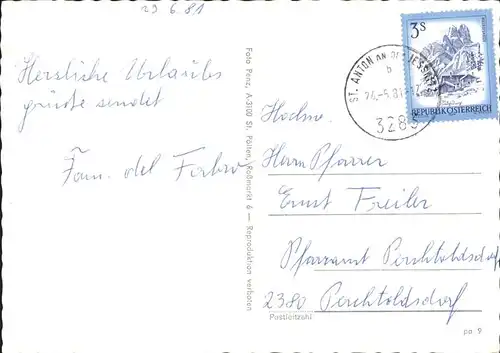 29.6.81
Herzliche Urlaubs
grüße sendet
Fam. del Fabro
Foto Penz, A-3100 St. Pölten, Roßmarkt 6 — Reproduktion verboten
ST. ANTON AN DER JESSNITZ
b
3283
3 S
REPUBLIK ÖSTERREICH
Hochw.
Herrn Pfarrer
Ernst Freiler
Pfarramt Perchtoldsdorf
2380 Perchtoldsdorf
Postleitzahl
pa 9